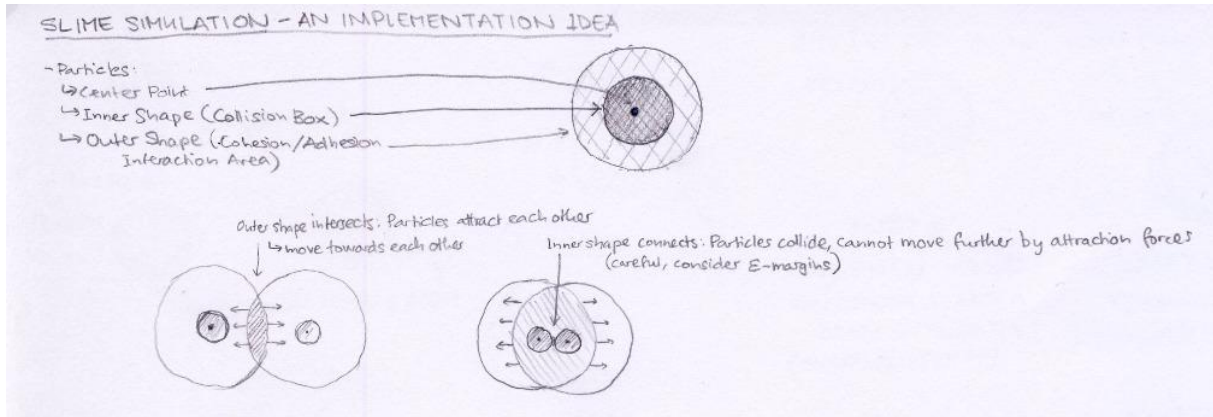 SLIME SIMULATION - AN IMPLEMENTATION IDEA
- Particles:
↳ Center Point
↳ Inner Shape (Collision Box)
↳ Outer Shape (Cohesion/Adhesion
Interaction Area)
Outer shape intersects: Particles attract each other
↳ move towards each other
Inner shape connects: Particles collide, cannot move further by attraction forces
(careful, consider ε-margins)